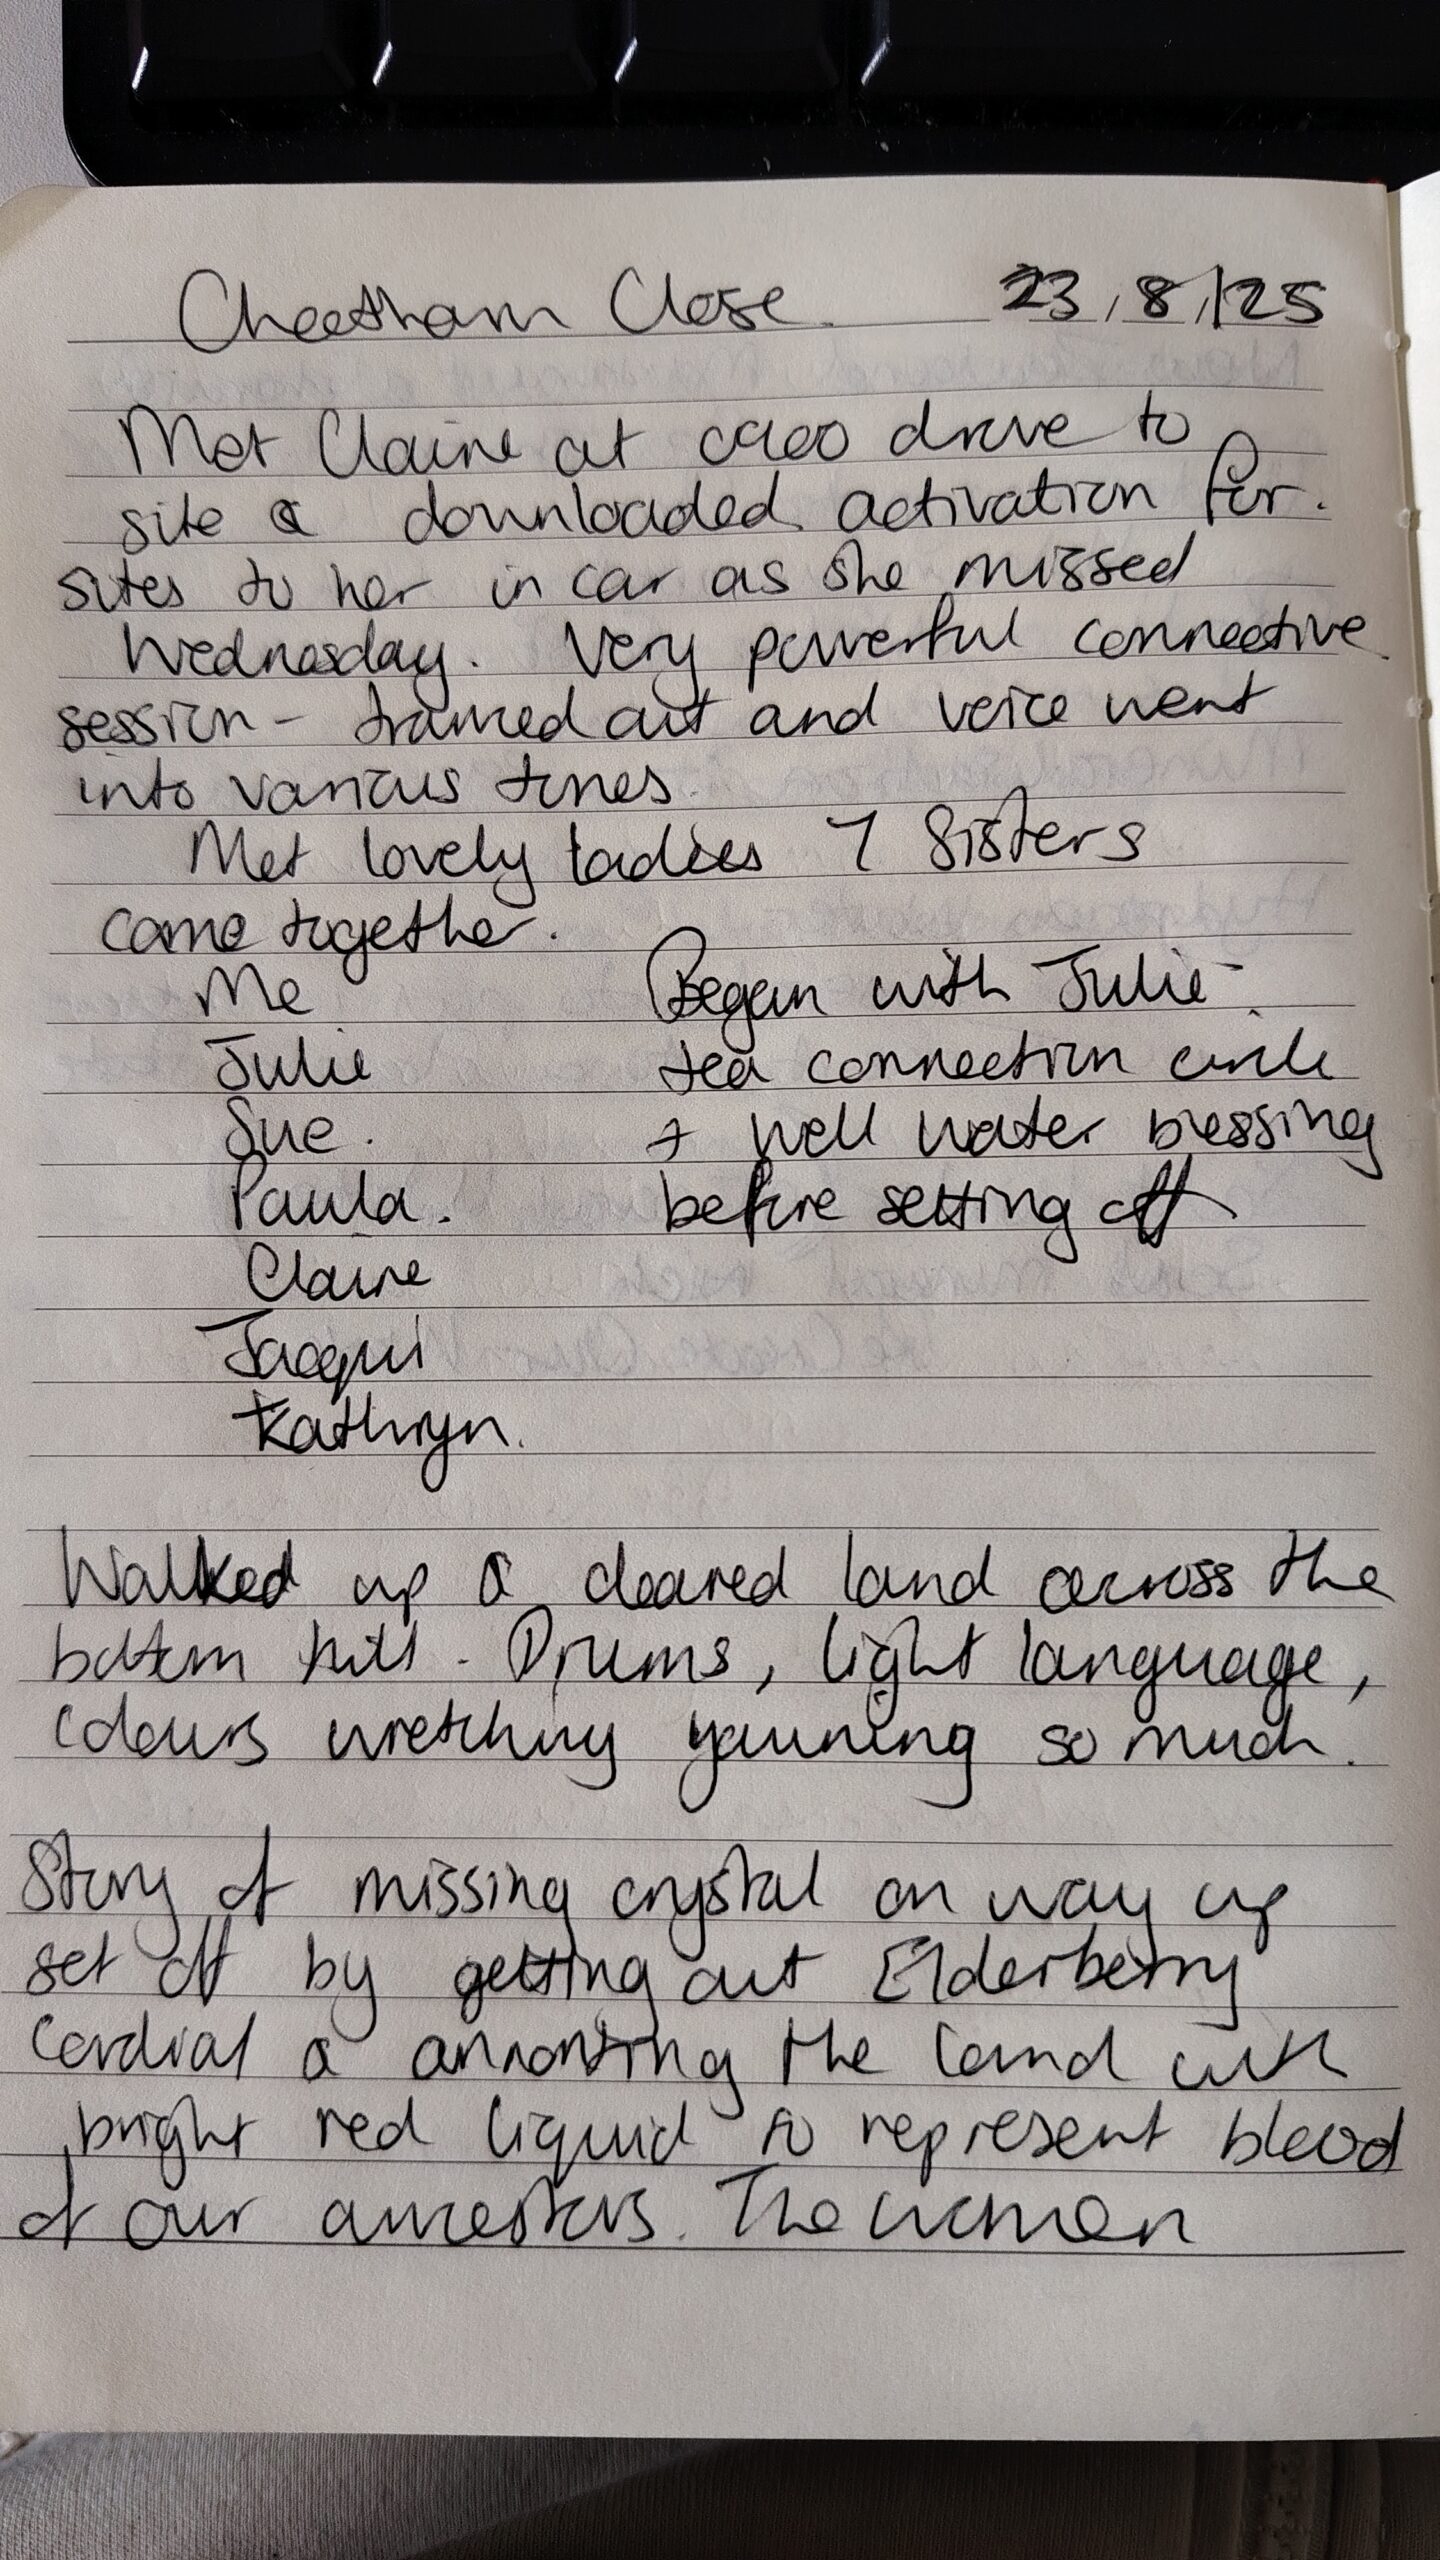 Cheetham Close. 23/8/25
Met Claire at 0900 drove to
site & downloaded activation for.
sites to her in car as she missed
Wednesday. Very powerful connective
session - tranced out and voice went
into various tones.
Met lovely ladies 7 Sisters
came together.
Me Began with Julie
Julie tea connection circle
Sue. + well water blessing
Paula. before setting off
Claire
Jacqui
Kathryn.
Walked up & cleared land across the
bottom hill. Drums, light language,
colours wretching yawning so much.
Story of missing crystal on way up
set off by getting out Elderberry
Cordial & annointing the land with
bright red liquid to represent blood
of our ancestors. The women